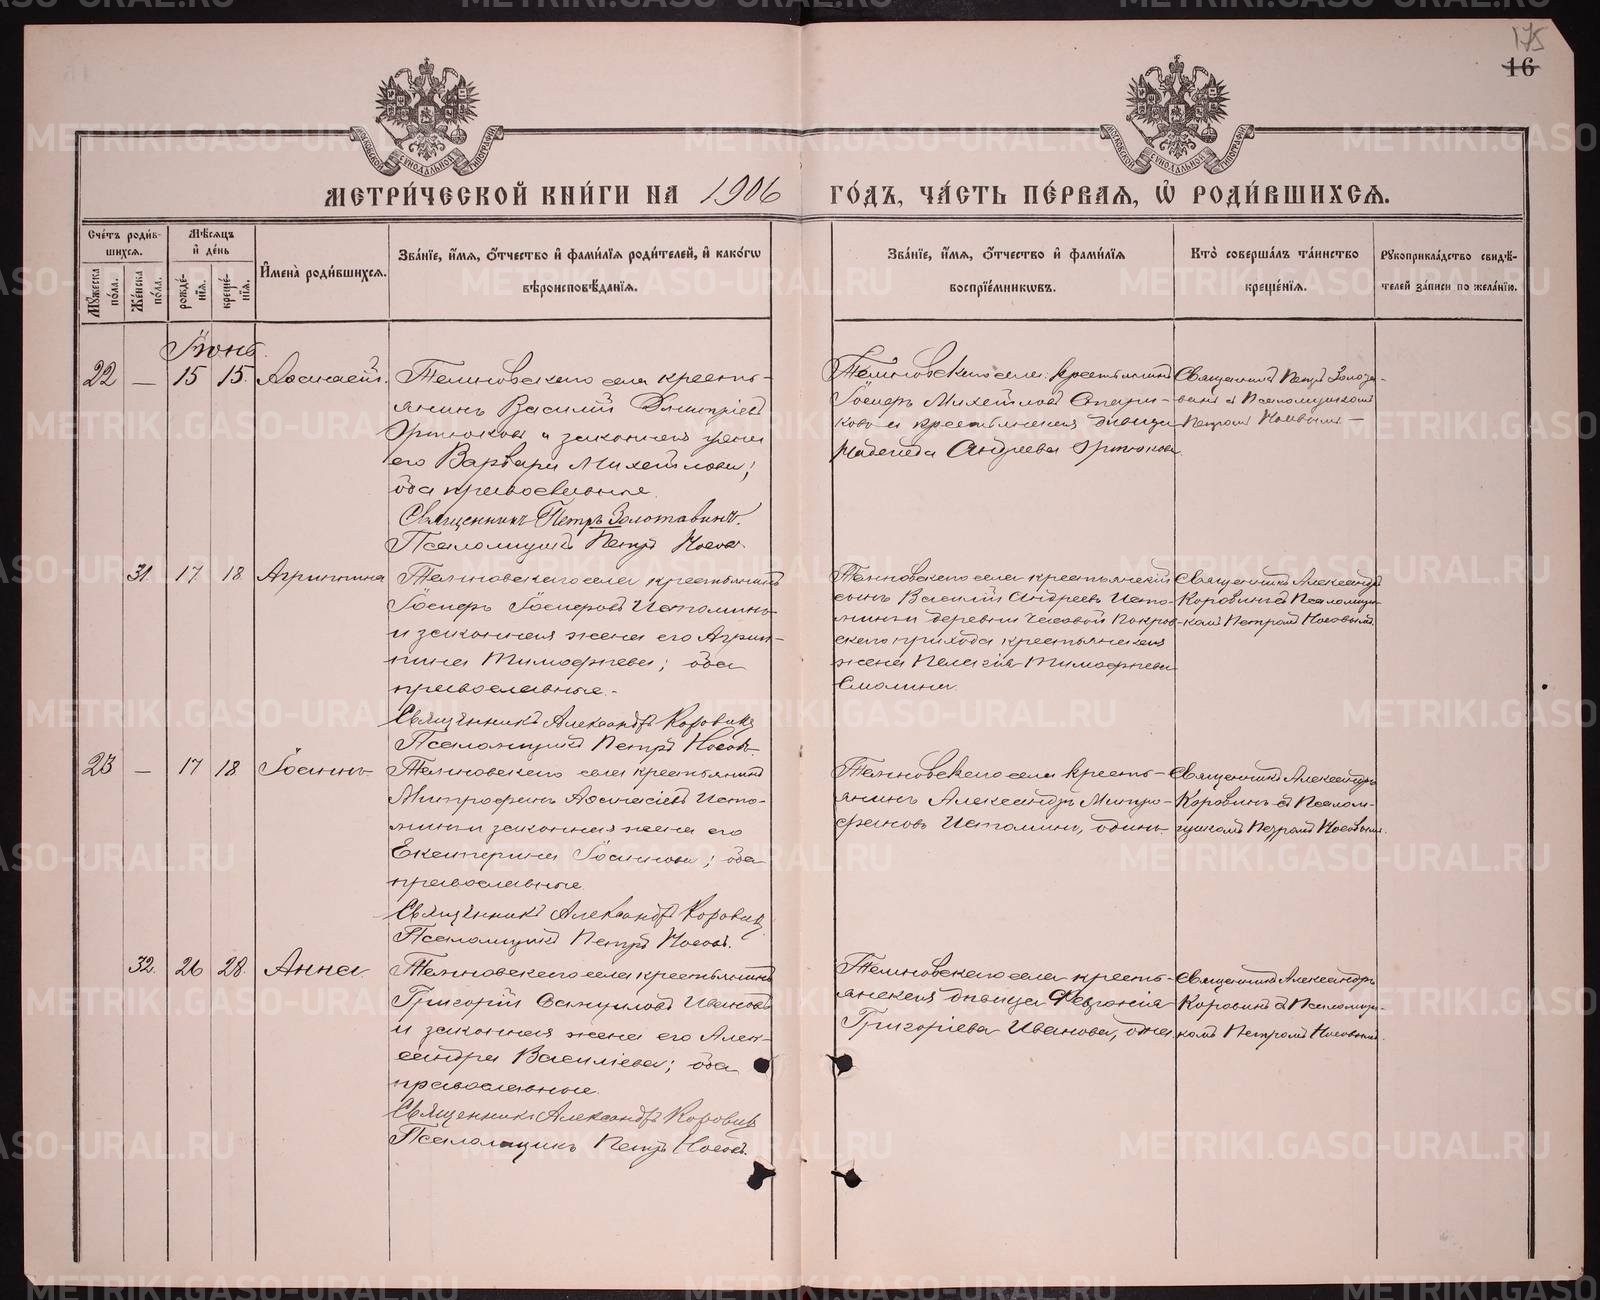 175
16
МЕТРИ́ЧЕСКОЙ КНИ́ГИ НА 1906 ГО́ДЪ, ЧА́СТЬ ПЕ́РВАЯ, Ѡ҆ РОДИ́ВШИХСѦ.
Сче́тъ роди́в-
шихсѧ.
Мꙋ́жеска по́ла.
Же́нска по́ла.
Мѣ́сѧцъ и҆ де́нь
рожде́-
нїѧ.
креще́-
нїѧ.
И҆мена̀ роди́вшихсѧ.
Зва́нїе, и҆́мѧ, ѻ҆́тчество и҆ фами́лїѧ роди́телей, и҆ како́гѡ
вѣроисповѣ́данїѧ.
Зва́нїе, и҆́мѧ, ѻ҆́тчество и҆ фами́лїѧ
воспрїе́мникѡвъ.
Кто̀ соверша́лъ та́инство
креще́нїѧ.
Рꙋкоприкла́дство свидѣ́-
телей за́писи по жела́нїю.
Іюнь.
22 — 15 15
Темновскаго села кресть-
янинъ Василій Димитріевъ
и законная жена
его Варвара Михайлова;
оба православные.
Священникъ Петръ Золотавинъ.
Псаломщикъ Петръ Носовъ.
Михайловъ
и крестьянская дѣвица
Надежда Андреева
Священникъ Петръ Золота-
винъ съ Псаломщикомъ
Петромъ Носовымъ —
31 17 18 Агриппина
села крестьянинъ
Іосифъ Іосифовъ Истоминъ
и законная жена его Агрип-
пина Тимофеева; оба
православные.-
Священникъ Александръ Коровинъ
Псаломщикъ Петръ Носовъ.
села крестьянскій
сынъ Василій Андреевъ Исто-
минъ и деревни Часовой Покров-
скаго прихода крестьянская
жена Пелагія Тимофеева
Смолина.
Священникъ Александръ
Коровинъ съ Псаломщи-
комъ Петромъ Носовымъ.
23 — 17 18 Іоаннъ
села крестьянинъ
Митрофанъ Аѳанасіевъ Исто-
минъ и законная жена его
Екатерина Іоаннова; оба
православные.
Священникъ Александръ Коровинъ
Псаломщикъ Петръ Носовъ.
села кресть-
янинъ Александръ Митро-
фановъ Истоминъ, одинъ.
Священникъ Александръ
Коровинъ съ Псалом-
щикомъ Петромъ Носовымъ.
32. 26 28 Анна
села крестьянинъ
Григорій Самуиловъ Ивановъ
и законная жена его Алек-
сандра Василіева; оба
православные.
Священникъ Александръ Коровинъ
Псаломщикъ Петръ Носовъ.
села кресть-
янская дѣвица Февронія
Григоріева Иванова, одна.
Священникъ Александръ
Коровинъ съ Псаломщи-
комъ Петромъ Носовымъ.
METRIKI.GASO-URAL.RU